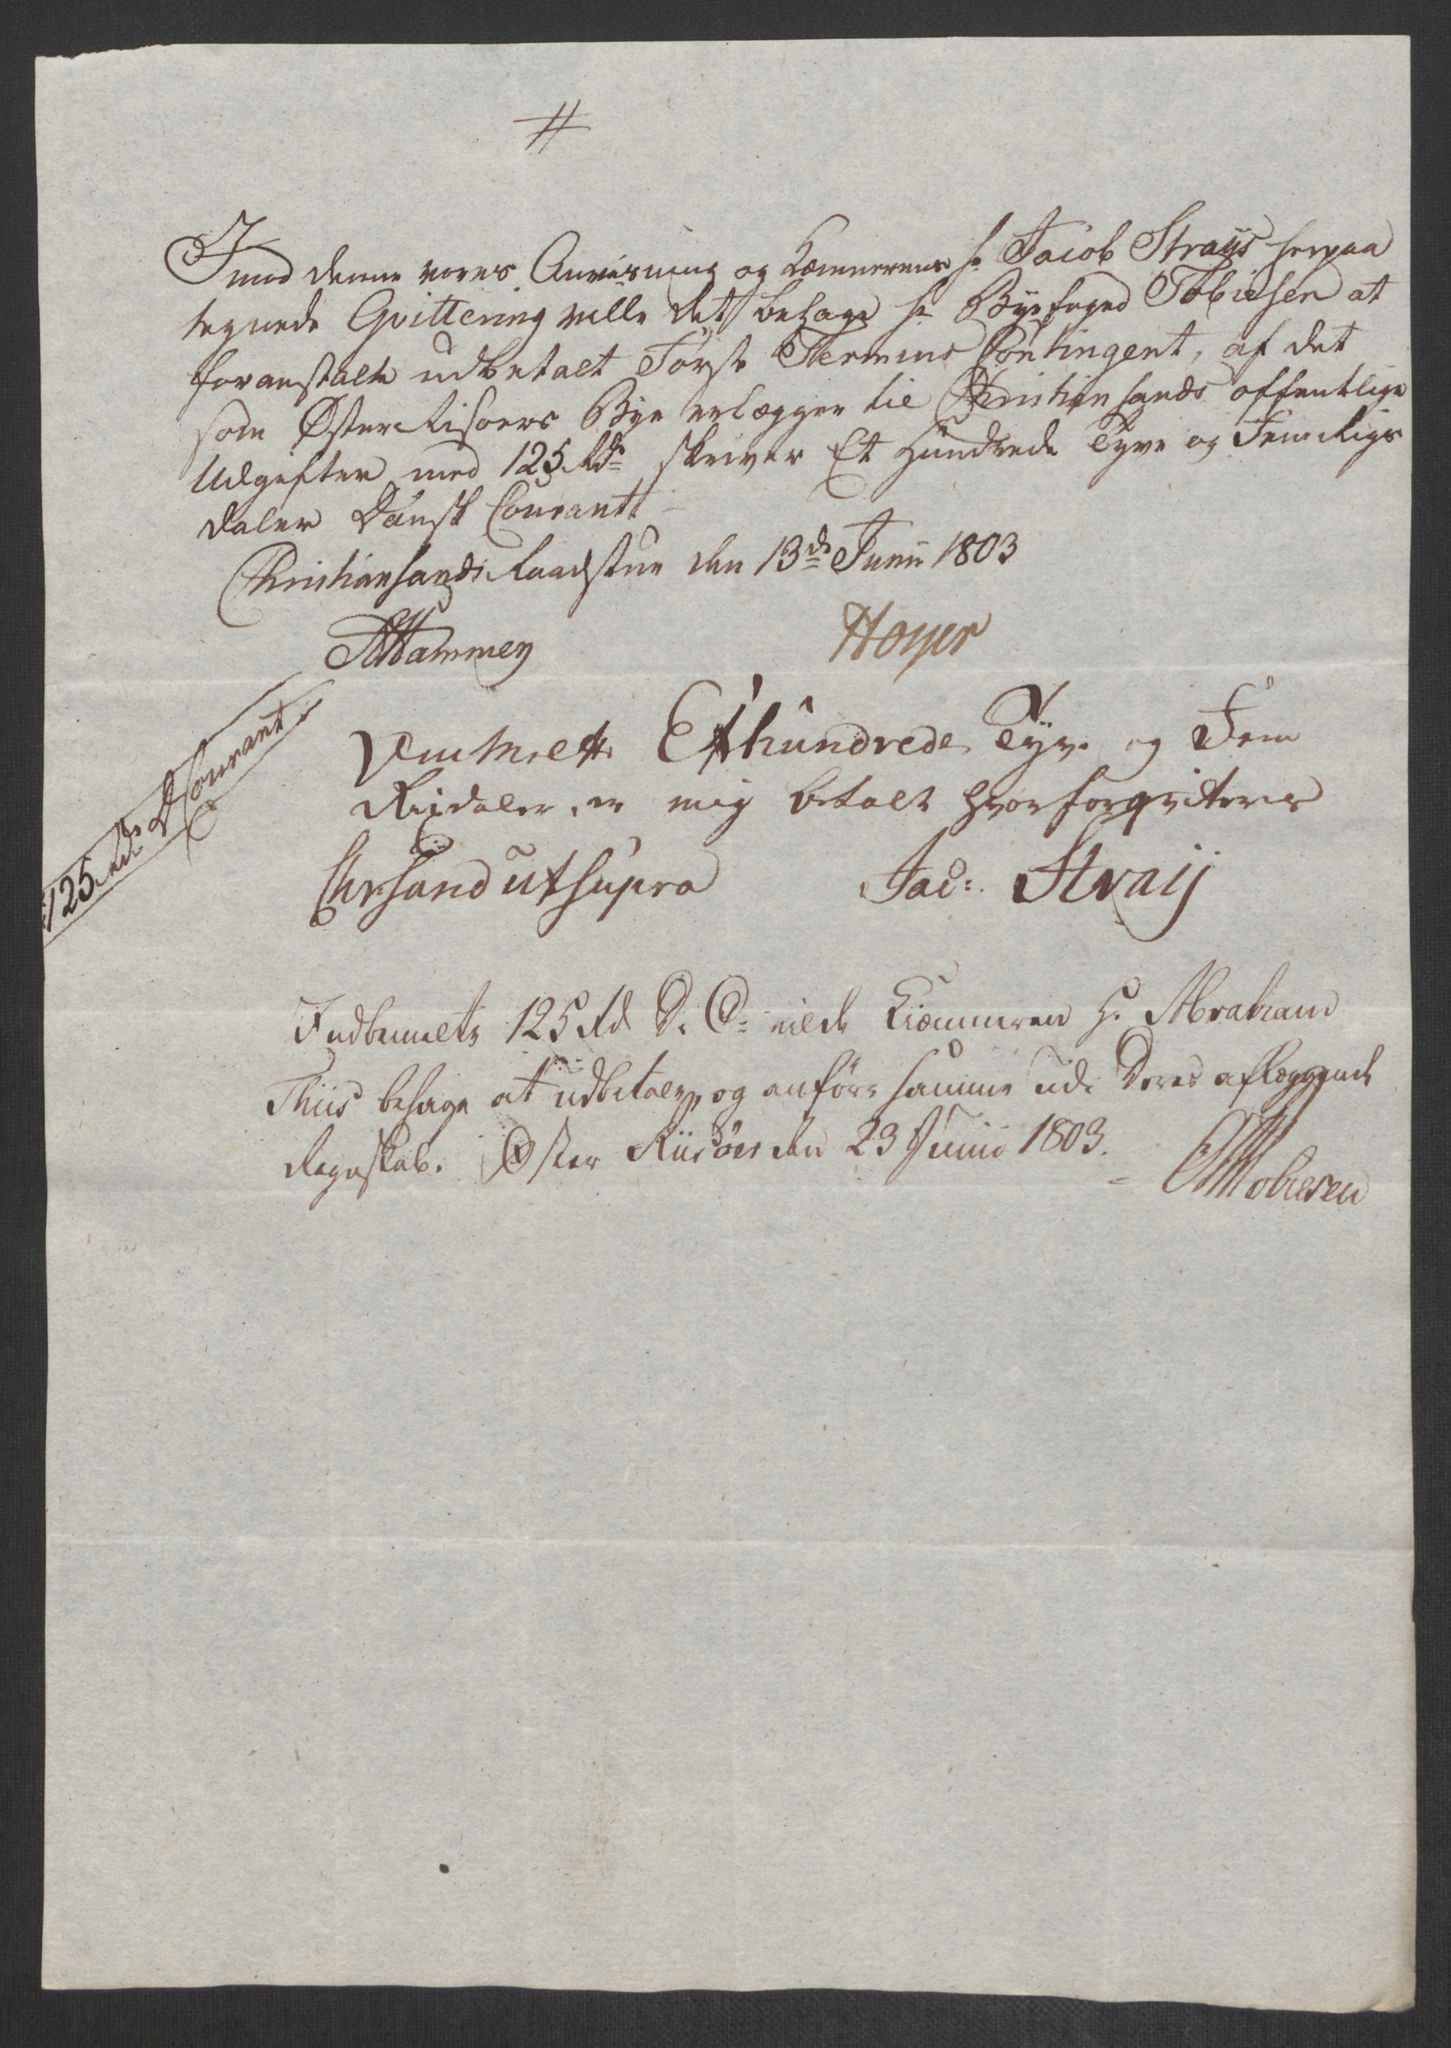 #
Imod denne vores Anviisning og Kæmnerens hr Jacob Strays herpaa
tegnede Qvittering ville det behage hr Byefoged Tobiesen at
foranstalte udbetalt Første Termins Contingent, af det
som Øster Risøers Bye erlægger til Christiansands offentlige
Udgifter med 125 Rdr skriver Et Hundrede Tyve og Fem Rigs
daler Dansk Courantt
Christiansands Raadstue den 13de Junii 1803
Hammer Høyer
125 Rdr D Courant
Vermeldte Ethundrede Tyve og Fem
Rixdaler, er mig betalt hvorfor qviteres
Chrsand ut supra Jac: Straij
Indbemelte 125 Rd D. C: vilde Kiæmneren H. Abraham
Thiis behage at udbetale, og anføre samme udi Deres aflæggende
Regnskab. Øster Riisøer den 23 Junii 1803.
Tobiesen